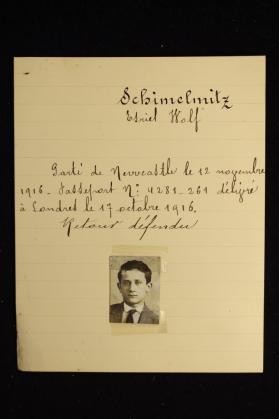 Schimelmitz
Esriel Wolf
Parti de Newcastle le 12 novembre
1916 - Passeport No: 4281-261 délivré
à Londres le 17 octobre 1916.
Retour défendu